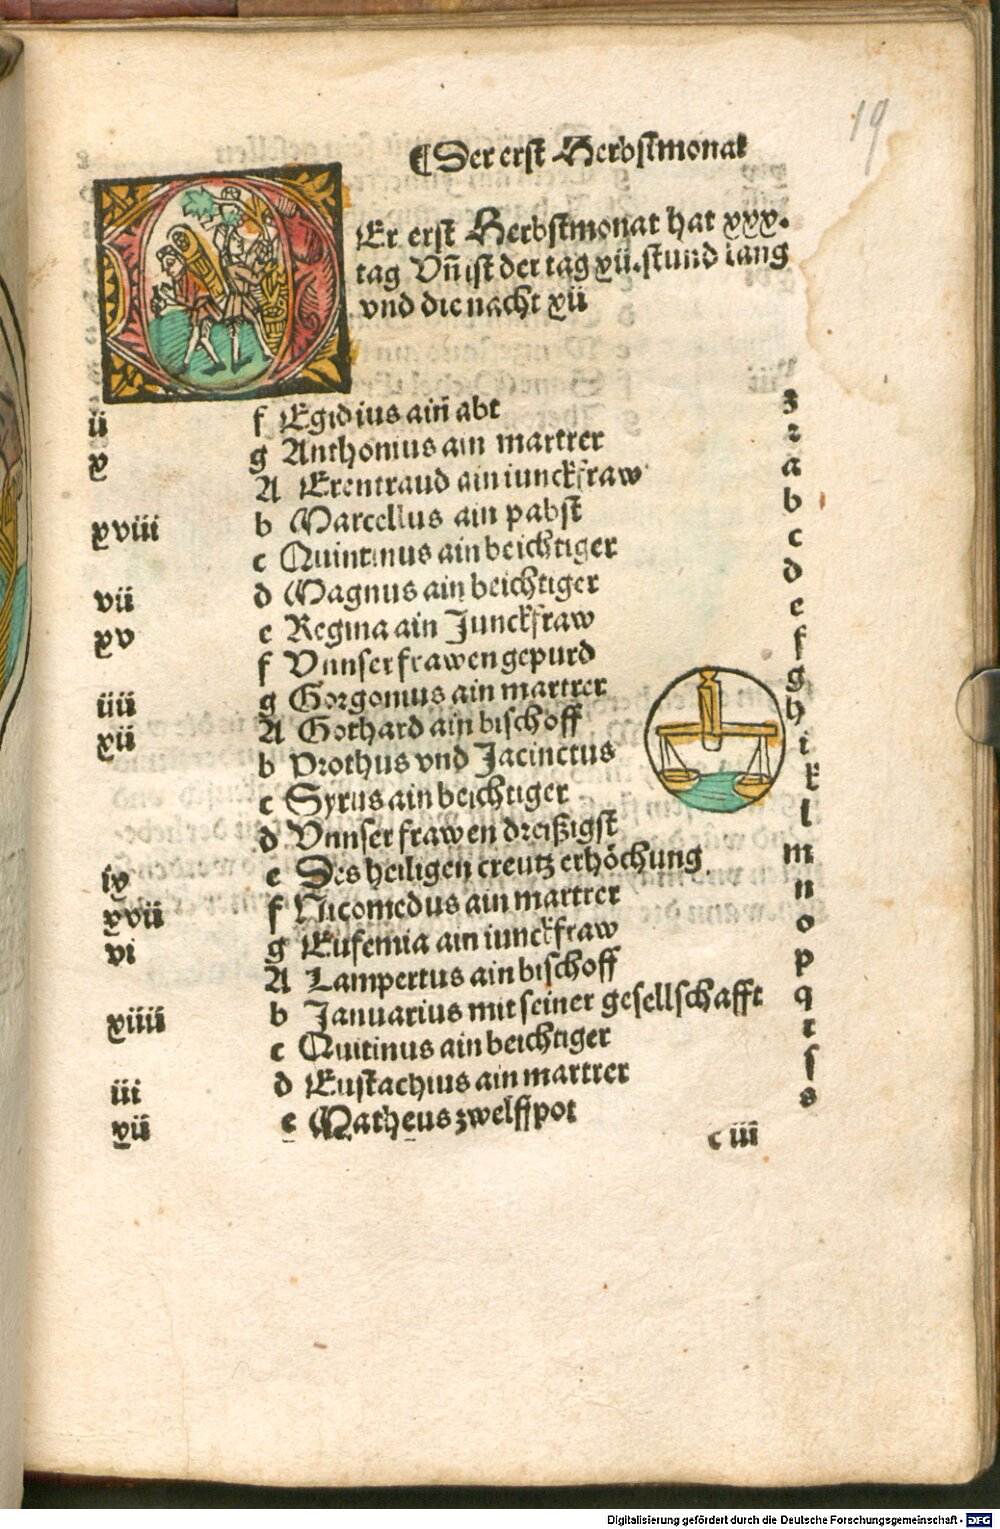 19
¶Der erst Herbstmonat
Er erst Herbstmonat hat xxx.
tag Vñ ist der tag xii. stund lang
vnd die nacht xii
ii f Egidius ain abt z
x g Anthonius ain martrer z
A Erentraud ain iunckfraw a
xviii b Marcellus ain pabst b
c Quintinus ain beichtiger c
vii d Magnus ain beichtiger d
xv e Regina ain Junckfraw e
f Vnnser frawen gepurd f
iiii g Gorgonius ain martrer g
xii A Gothard ain bischoff h
b Prothus vnd Jacinctus i
c Syrus ain beichtiger k
d Vnnser frawen dreißigst l
ix e Des heiligen creutz erhöchung m
xvii f Nicomedus ain martrer n
vi g Eufemia ain iunckfraw o
A Lampertus ain bischoff p
xiiii b Januarius mit seiner gesellschafft q
c Quitinus ain beichtiger r
iii d Eustachius ain martrer ſ
xii e Matheus zwelffpot s
c iii
Digitalisierung gefördert durch die Deutsche Forschungsgemeinschaft - DFG